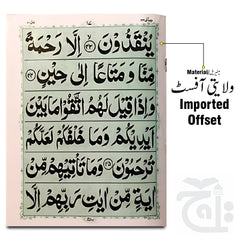 يُنْقَذُوْنَ ﴿٤٣﴾ اِلَّا رَحْمَةً
مِّنَّا وَمَتَاعًا اِلٰى حِيْنٍ ﴿٤٤﴾
وَاِذَا قِيْلَ لَهُمُ اتَّقُوْا مَا بَيْنَ
اَيْدِيْكُمْ وَمَا خَلْفَكُمْ لَعَلَّكُمْ
تُرْحَمُوْنَ ﴿٤٥﴾ وَمَا تَاْتِيْهِمْ مِّنْ
اٰيَةٍ مِّنْ اٰيٰتِ رَبِّهِمْ اِلَّا
Material
ولایتی آفسٹ
Imported
Offset